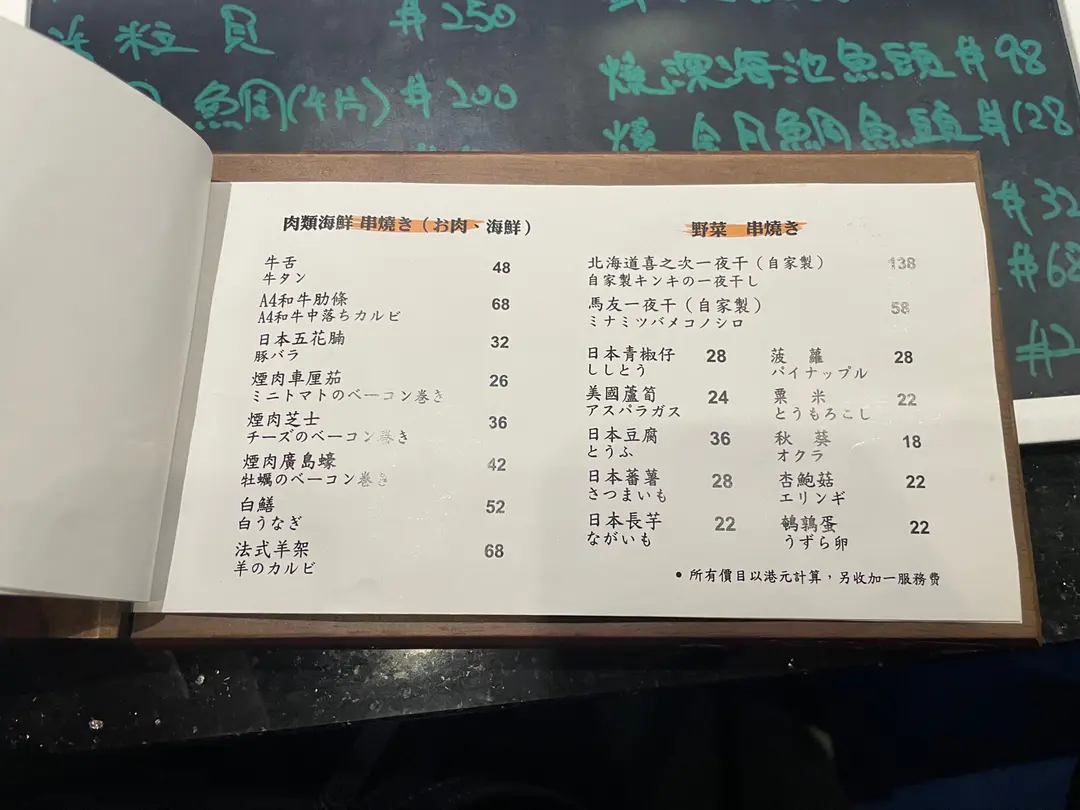 粒貝 #250
鯛(4片) #200
燒深海池魚頭 #98
燒 鯛魚頭 #128
#32
#68
肉類海鮮 串燒き（お肉、海鮮）
牛舌 48
牛タン
A4和牛肋條 68
A4和牛中落ちカルビ
日本五花腩 32
豚バラ
煙肉車厘茄 26
ミニトマトのベーコン巻き
煙肉芝士 36
チーズのベーコン巻き
煙肉廣島蠔 42
牡蠣のベーコン巻き
白鱔 52
白うなぎ
法式羊架 68
羊のカルビ
野菜 串燒き
北海道喜之次一夜干（自家製） 138
自家製キンキの一夜干し
馬友一夜干（自家製） 58
ミナミツバメコノシロ
日本青椒仔 28
ししとう
美國蘆筍 24
アスパラガス
日本豆腐 36
とうふ
日本蕃薯 28
さつまいも
日本長芋 22
ながいも
菠蘿 28
パイナップル
粟米 22
とうもろこし
秋葵 18
オクラ
杏鮑菇 22
エリンギ
鵪鶉蛋 22
うずら卵
• 所有價目以港元計算，另收加一服務費